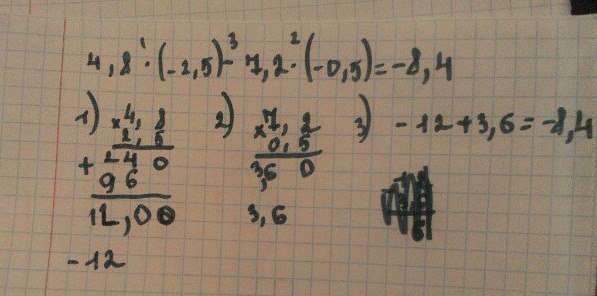 4,8 ·¹ (-2,5) -³ 7,2 ·² (-0,5) = -8,4
1) × 4,8
2,5
+ 240
96
12,00
-12
2) × 7,2
0,5
3,60
3,6
3) -12 + 3,6 = -8,4